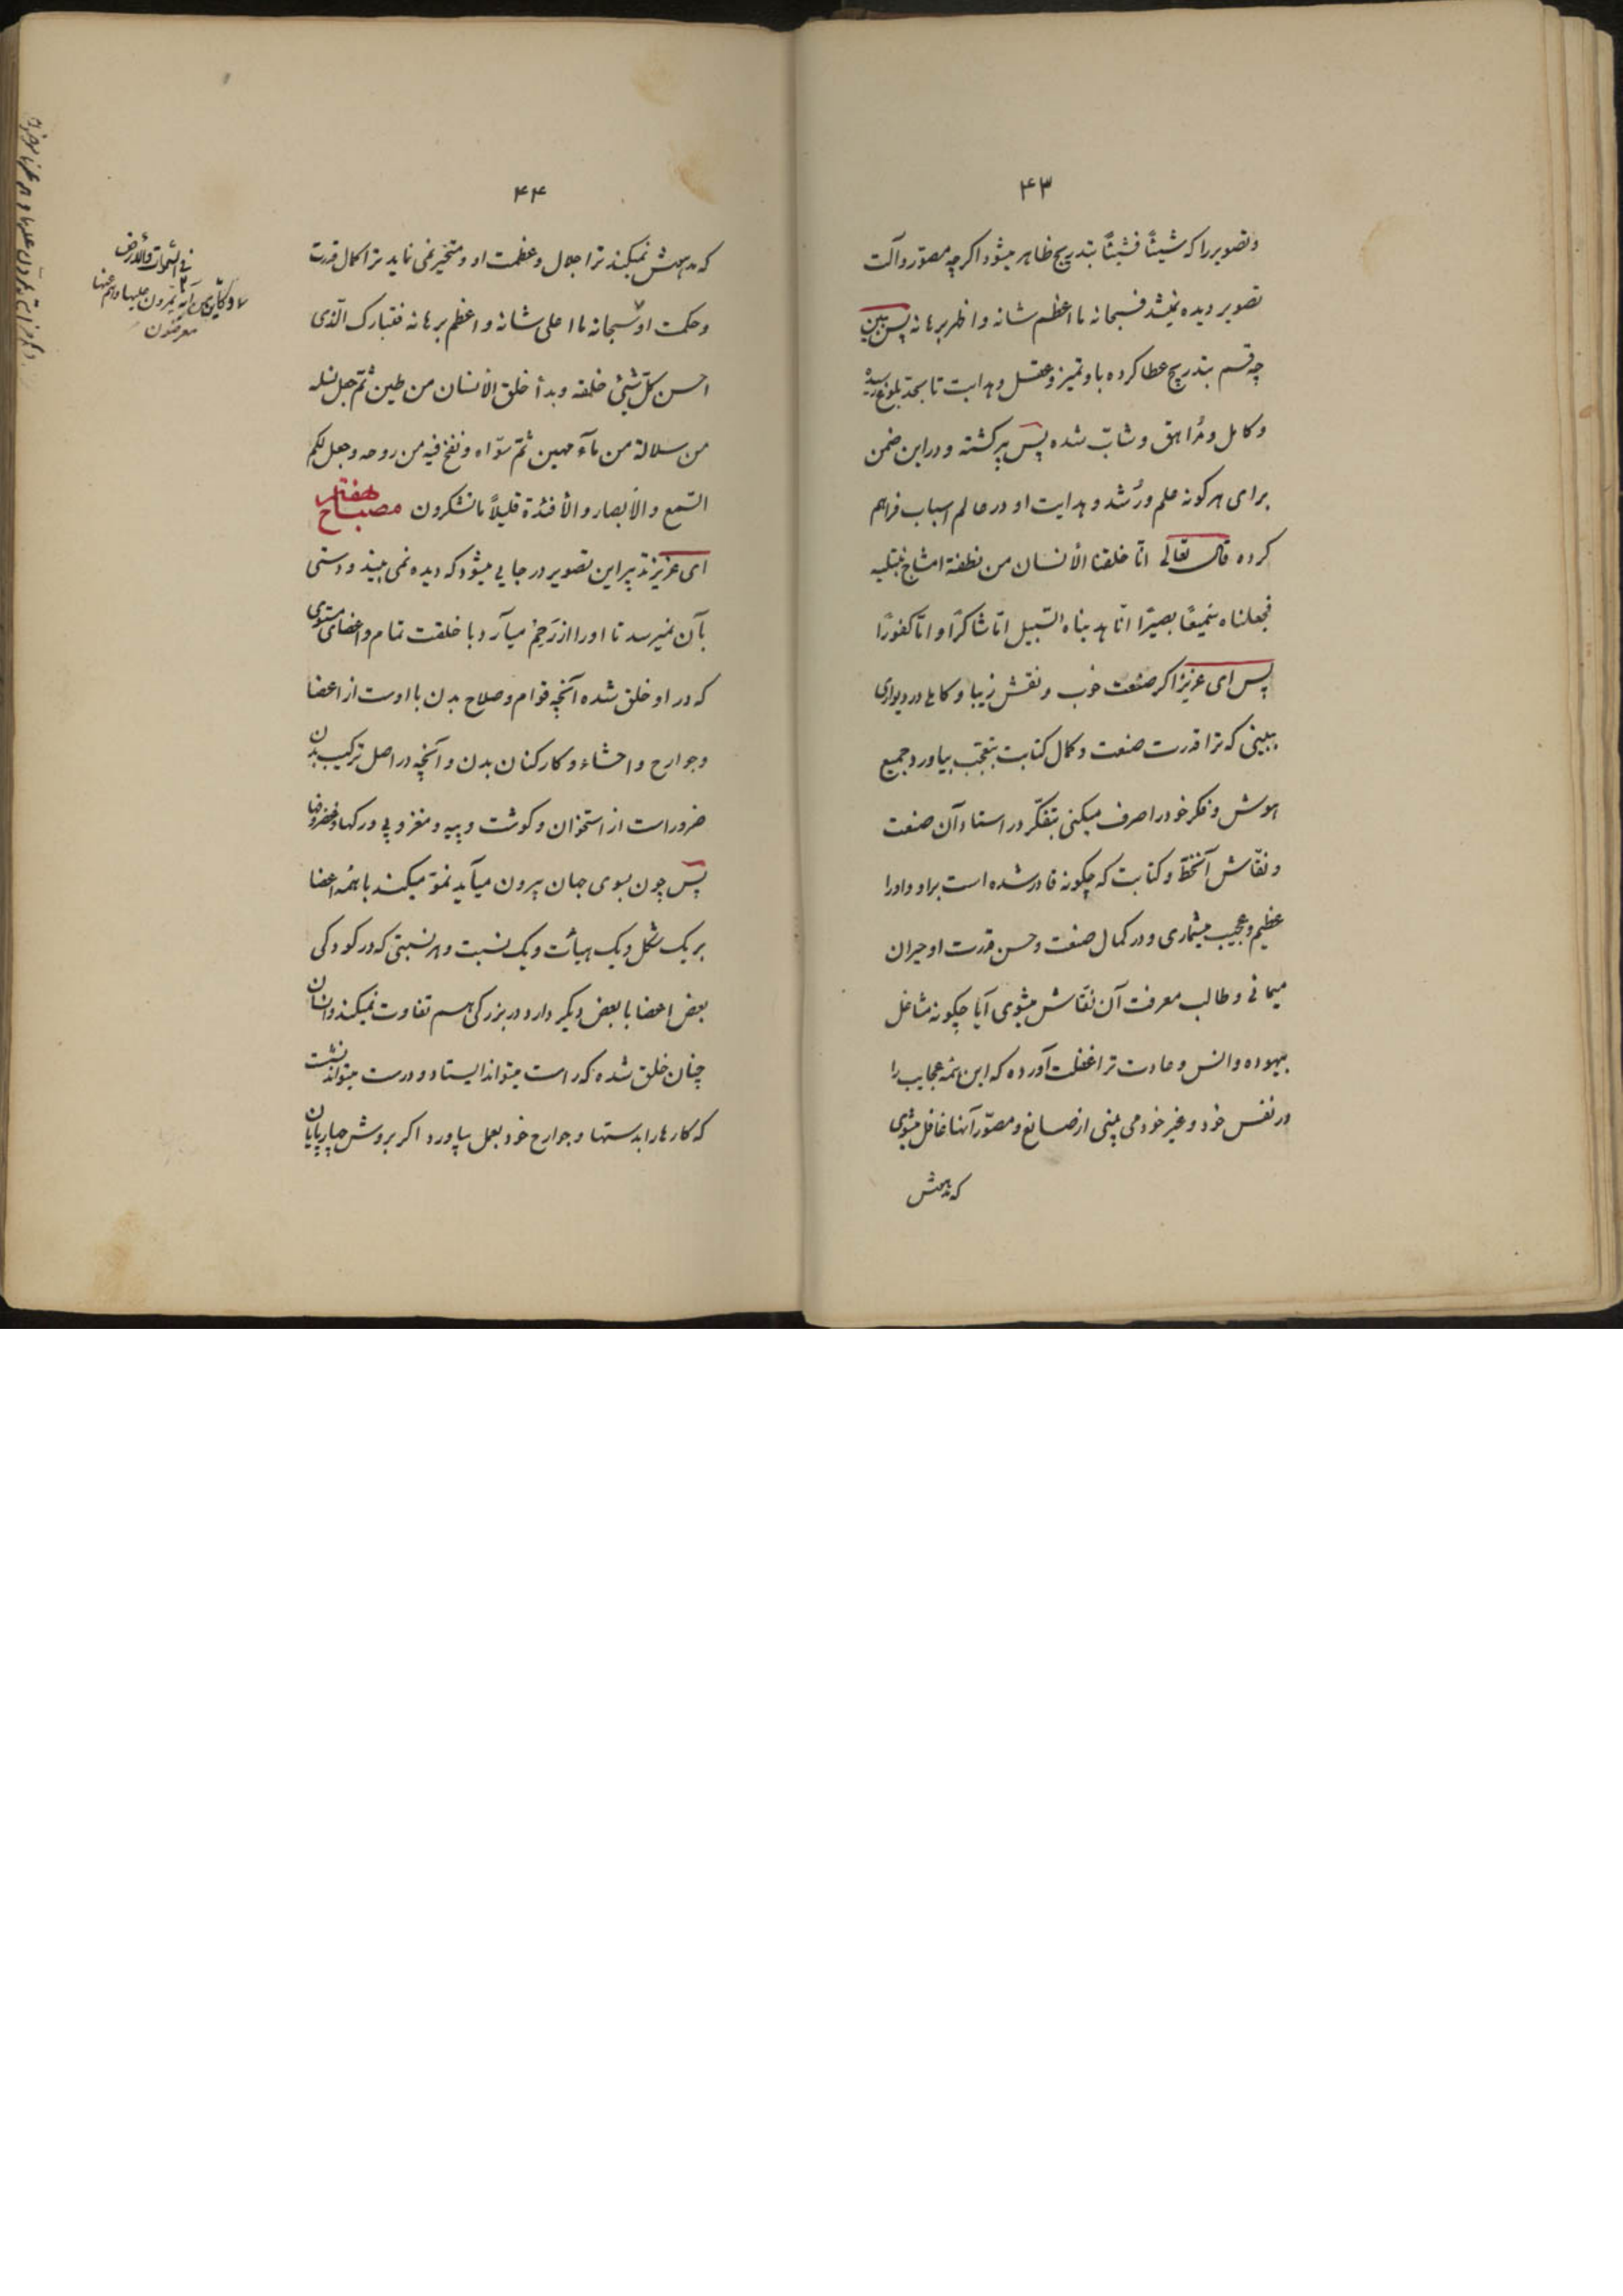 ۴۳
و تصویر را که شیئاً فشیئاً بتدریج ظاهر میشود اکرچه مصوّر و آلت
تصویر دیده نمیشد فسبحانه ما اعظم شانه و اظهر برهانه پس ببین
چه قسم بتدریج عطا کرده باو تمیز و عقل و هدایت تا بحدّ بلوغ رسیده
و کامل و مُراهق و شابّ شده پس پیر کشته و در این ضمن
برای هر کونه علم و رُشد و هدایت او در عالم اسباب فراهم
کرده قال تعالی انّا خلقنا الأنسان من نطفة امشاج نبتلیه
فجعلناه سَمیعًا بصیرًا انّا هدیناه السّبیل امّا شاکرًا و امّا کفورًا
پس ای عزیز اکر صنعت خوب و نقش زیبا و کاملی در دیواری
ببینی که ترا قدرت صنعت و کمال کتابت بتعجّب بیاورد جمیع
هوش و فکر خود را صرف میکنی بتفکّر در استاد آن صنعت
و نقّاش آنخطّ و کتابت که چکونه قادر شده است بر او و او را
عظیم و عجیب میشماری و در کمال صنعت و حسن قدرت او حیران
میمانی و طالب معرفت آن نقّاش میشوی آیا چکونه مشاغل
بیهوده و انس و عادت ترا غفلت آورده که این همه عجایب را
در نفس خود و غیر خود می بینی از صانع و مصوّر آنها غافل میشوی
که مدهش
۴۴
که مدهش نمیکند ترا جلال و عظمت او و متحیّر نمی نماید ترا کمال قدرت
و حکمت او سبحانه ما اعلی شانه و اعظم برهانه فتبارک الّذی
احسن کلّ شیئ خلقه و بدأ خلق الأنسان من طین ثمّ جعل نسله
من سلالة من مآء مهین ثمّ سوّاه و نفخ فیه من روحه و جعل لکم
السّمع و الأبصار و الأفئدة قلیلاً ما تشکرون مصباح هفتم
ای عزیز تدبیر این تصویر در جایی میشود که دیده نمی بیند و دستی
بآن نمیرسد تا او را از رَحِمْ میآرد با خلقت تمام و اعضای مستوی
که در او خلق شده آنچه قوام و صلاح بدن با اوست از اعضا
و جوارح و احشاء و کارکنان بدن و آنچه در اصل ترکیب بدن
ضرور است از استخوان و کوشت و پیه و مغز و پی و رکها و غضروفها
پس چون بسوی جهان بیرون میآید نموّ میکند با همه اعضا
بر یک شکل و یک هیأت و یک نسبت و هر نسبتی که در کودکی
بعض اعضا با بعض دیکر دارد در بزرکی هم تفاوت نمیکند و انسان
چنان خلق شده که راست میتواند ایستاد و درست میتواند نشست
که کارها را بدستها و جوارح خود بعمل بیاورد اکر بروش چارپایان
و کأیّن من آیة
فی السّموات و الأرض
یمرّون علیها و هم عنها
معرضون